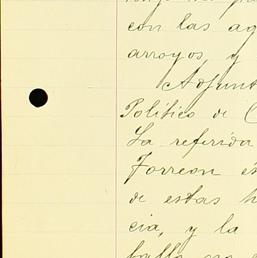 con las ag
arroyos, y
Adjunt
Politico de C
La referida
Torreon es
de estas h
cia, y la